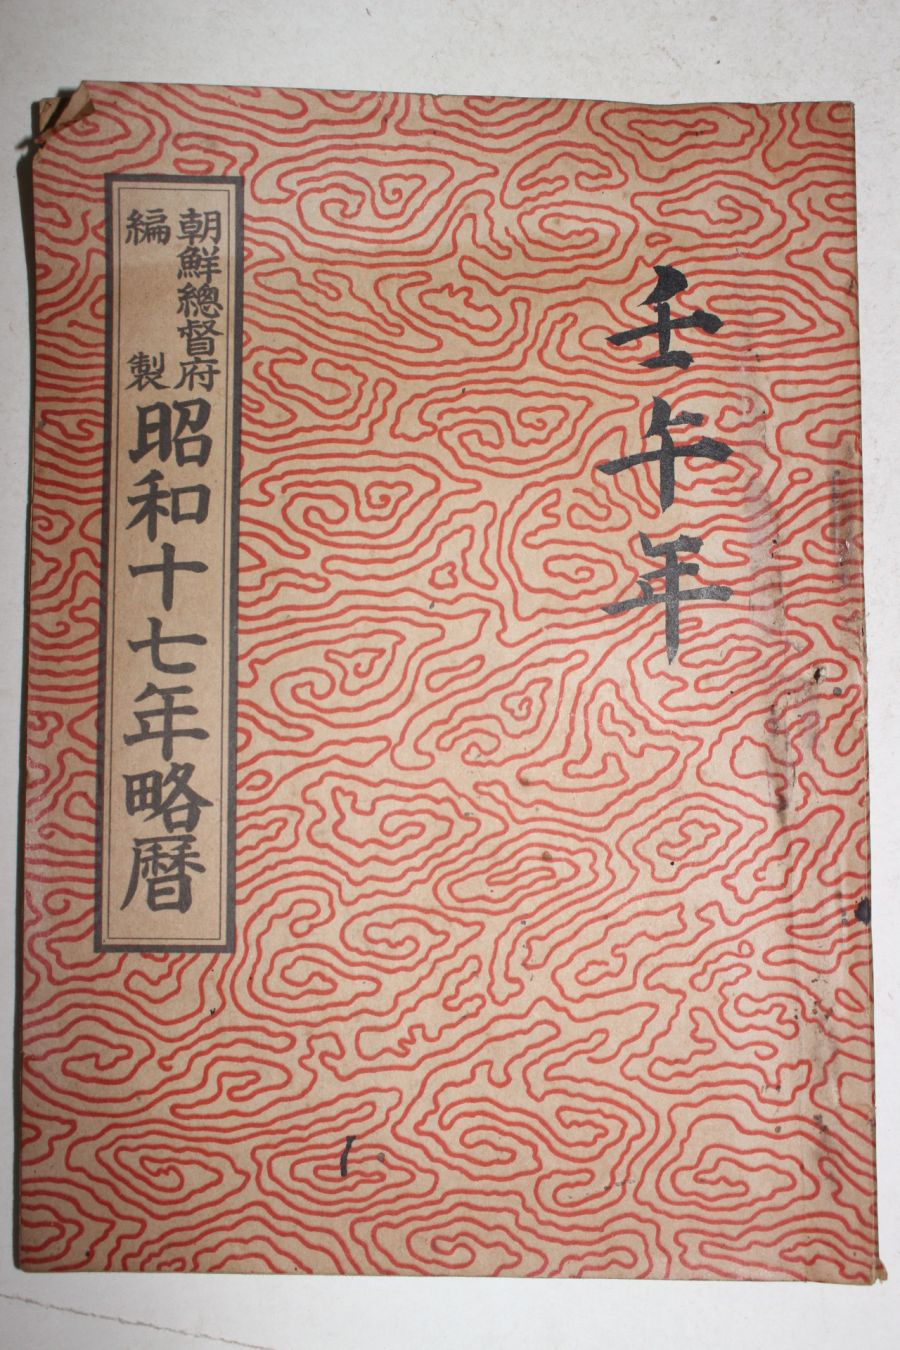 壬午年
朝鮮總督府
編製
昭和十七年略曆